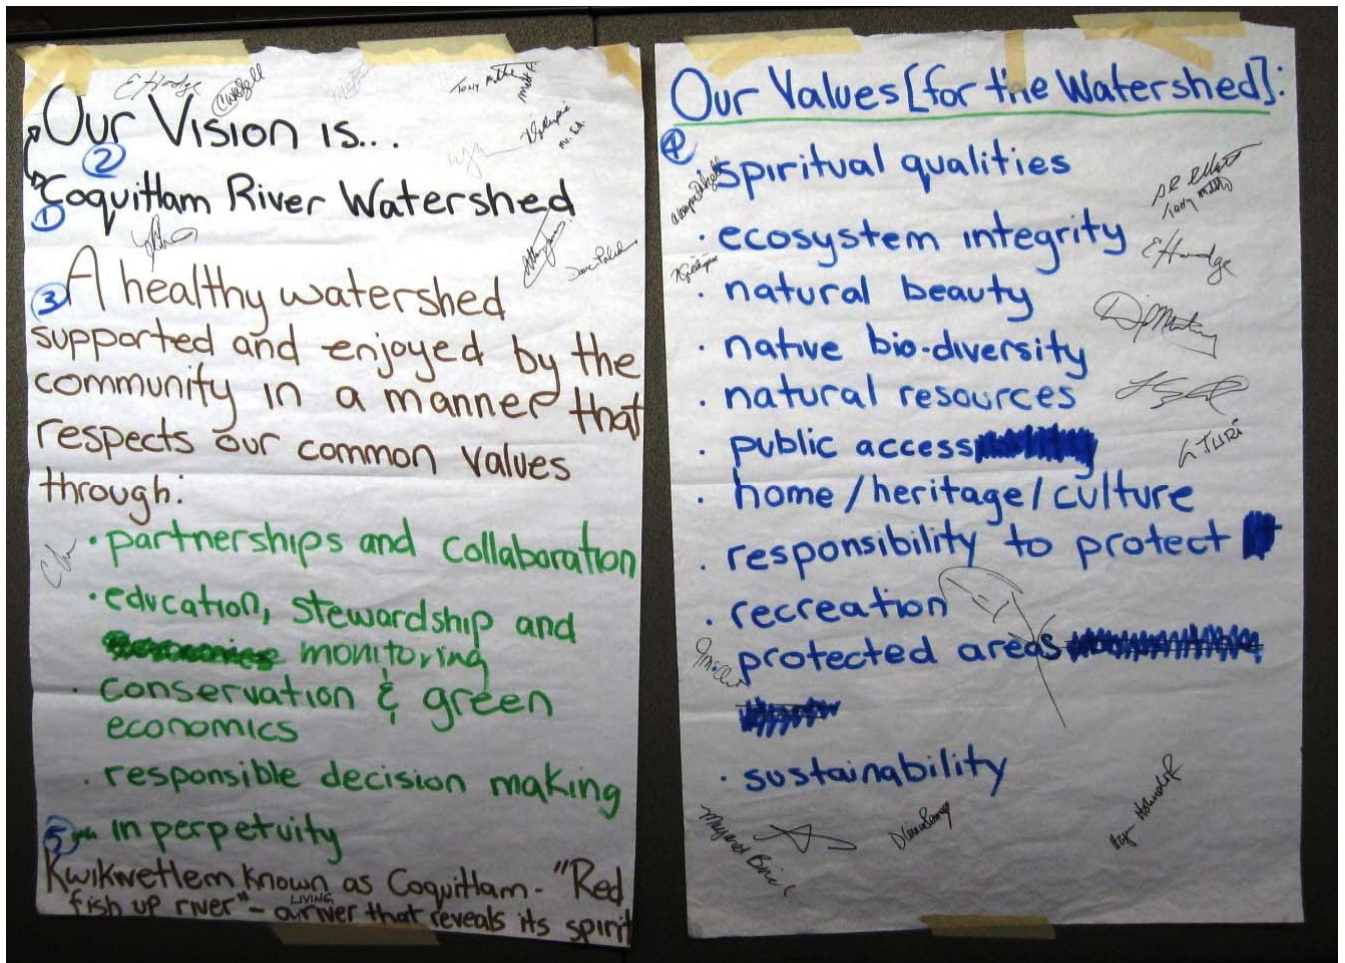 E Hodge
Our Vision is...
2
Coquitlam River Watershed
1
3 A healthy watershed
supported and enjoyed by the
community in a manner that
respects our common values
through:
· partnerships and collaboration
· education, stewardship and
monitoring
· conservation & green
economics
· responsible decision making
5 in perpetuity
Kwikwetlem known as Coquitlam - "Red
fish up river" - a LIVING river that reveals its spirit
Our Values [for the Watershed]:
4 spiritual qualities
· ecosystem integrity
E Hodge
· natural beauty
· native bio-diversity
· natural resources
· public access
L TURI
· home / heritage / culture
· responsibility to protect
· recreation
protected areas
· sustainability